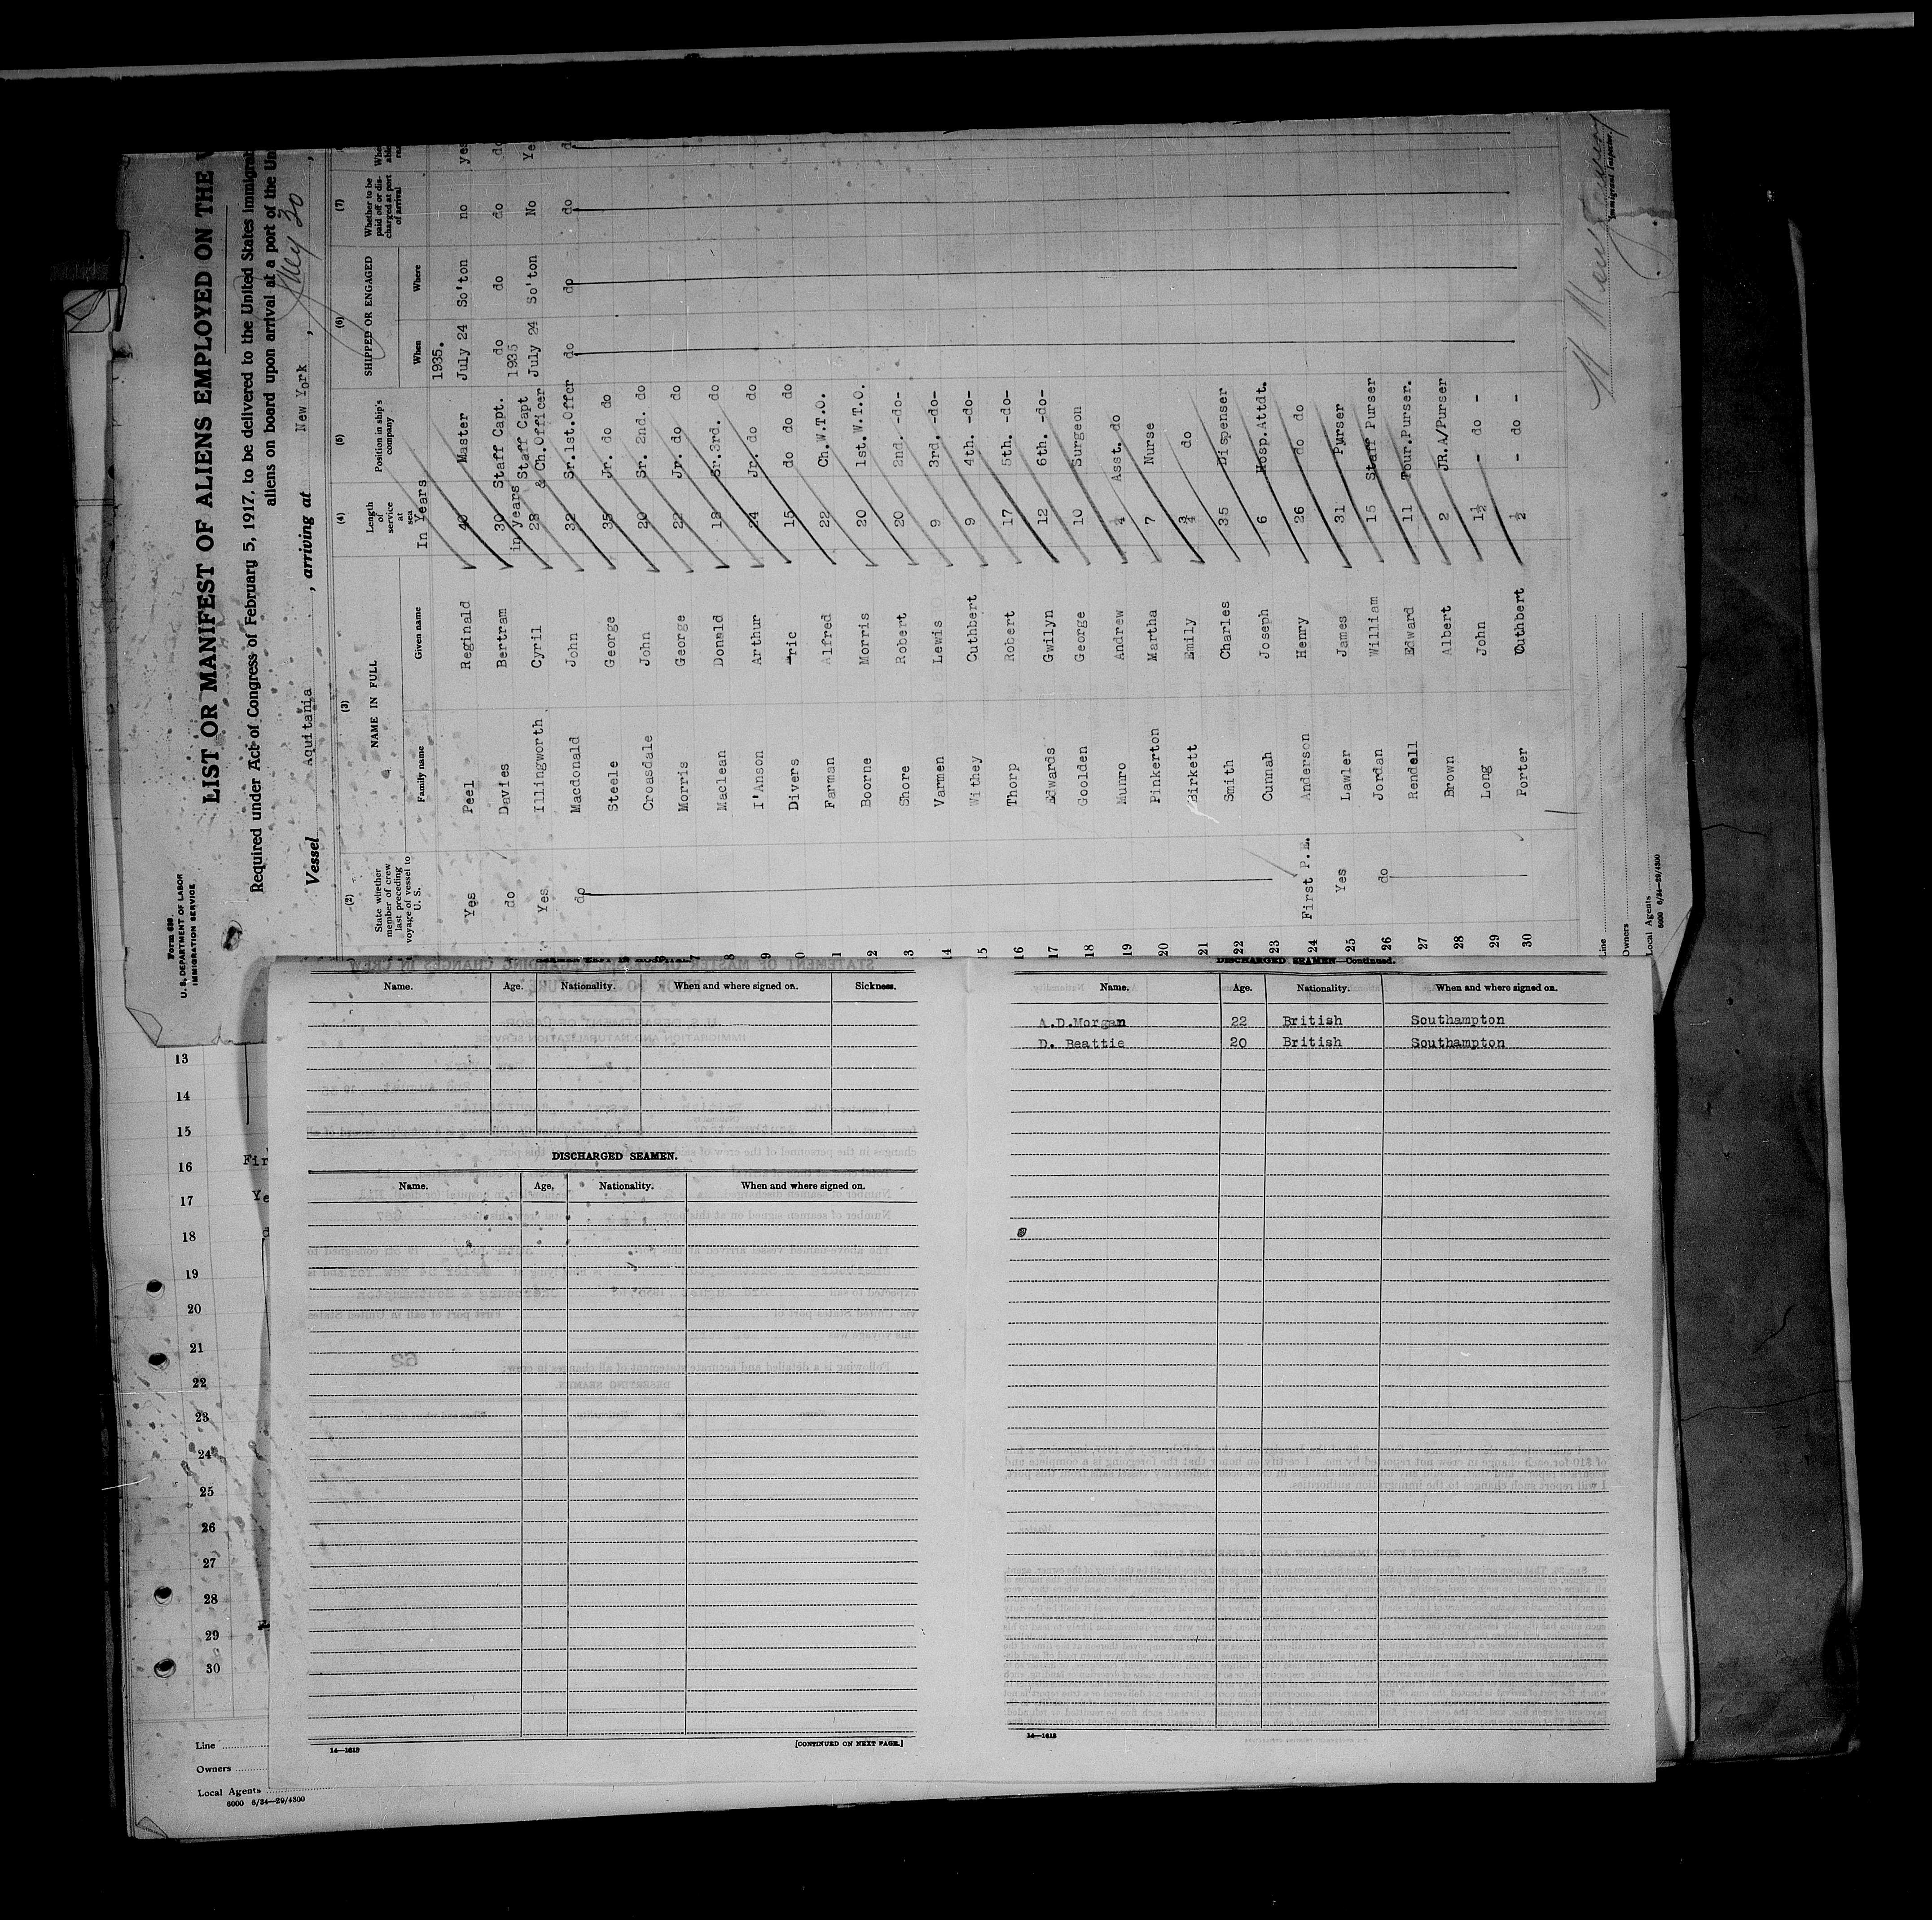 Form 689.
U. S. DEPARTMENT OF LABOR
IMMIGRATION SERVICE
LIST OR MANIFEST OF ALIENS EMPLOYED ON THE
Required under Act of Congress of February 5, 1917, to be delivered to the United States
aliens on board upon arrival at a port of the
Vessel Aquitania , arriving at New York , 30 ,
(2) (3) (4) (5) (6) (7)
State whether member of crew last preceding voyage of vessel to U. S. NAME IN FULL Length of service at sea Position in ship's company SHIPPED OR ENGAGED Whether to be paid off or discharged at port of arrival
Family name Given name When Where
In Years 1935.
Yes Peel Reginald 40 Master July 24 So'ton no yes
do Davies Bertram 30 Staff Capt. do do do do
in years Staff Capt 1935
Yes Illingworth Cyril 28 & Ch.Officer July 24 So'ton No Ye
do Macdonald John 32 Sr.1st.Offcr do do do d
Steele George 35 Jr. do do
Croasdale John 20 Sr. 2nd. do
7 Morris George 22 Jr. do do
8 Maclean Donald 18 Sr.3rd. do
9 I'Anson Arthur 24 Jr. do do
0 Divers ric 15 do do do
1 Farman Alfred 22 Ch.W.T.O.
2 Boorne Morris 20 1st.W.T.O.
3 Shore Robert 20 2nd. -do-
14 Varmen Lewis 9 3rd. -do-
15 Withey Cuthbert 9 4th. -do-
16 Thorp Robert 17 5th. -do-
17 Edwards Gwilyn 12 6th. -do-
18 Goolden George 10 Surgeon
19 Munro Andrew Asst. do
20 Pinkerton Martha 7 Nurse
21 Birkett Emily 3/4 do
22 Smith Charles 35 Dispenser
23 Cunnah Joseph 6 Hosp.Attdt.
24 First P.E. Anderson Henry 26 do do
25 Yes Lawler James 31 Purser
26 do Jordan William 15 Staff Purser
27 Rendell Edward 11 Tour.Purser.
28 Brown Albert 2 JR.A/Purser
29 Long John 1½ - do -
30 Porter Cuthbert ½ - do -
Immigrant Inspector.
Line
Owners
Local Agents
6000 6/34—29/4300
Name. Age. Nationality. When and where signed on. Sickness.
DISCHARGED SEAMEN.
Name. Age. Nationality. When and where signed on.
14—1613
[CONTINUED ON NEXT PAGE.]
DISCHARGED SEAMEN—Continued.
Name. Age. Nationality. When and where signed on.
A.D.Morgan 22 British Southampton
D. Beattie 20 British Southampton
14—1613
13
14
15
16 Fir
17 Ye
18 d
19
20
21
22
23
24
25
26
27
28
29
30
Line
Owners
Local Agents
6000 6/34—29/4300